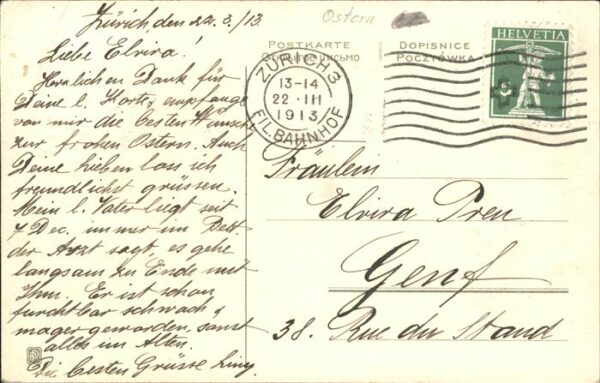 Zürich, den 22.3./13.
Liebe Elvira!
Herzlichen Dank für
Deine l. Karte, empfange
von mir die besten Wünsche
zur frohen Ostern. Auch
Deine lieben lass ich
freundlichst grüssen.
Mein l. Vater liegt seit
7 Dec. immer im Bett
der Arzt sagt, es gehe
langsam zu Ende mit
Ihm. Er ist schon
furchtbar schwach &
mager geworden, sonst
alles im Alten.
Die besten Grüsse
Ostern
POSTKARTE
DOPISNICE
POCZTÓWKA
HELVETIA
ZÜRICH 3
13-14
22 III
1913
FIL. BAHNHOF
Fräulein
Elvira Preu
Genf
38. Rue du Stand